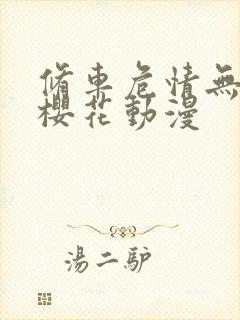 脩東危情無
櫻花動漫
湯二馿